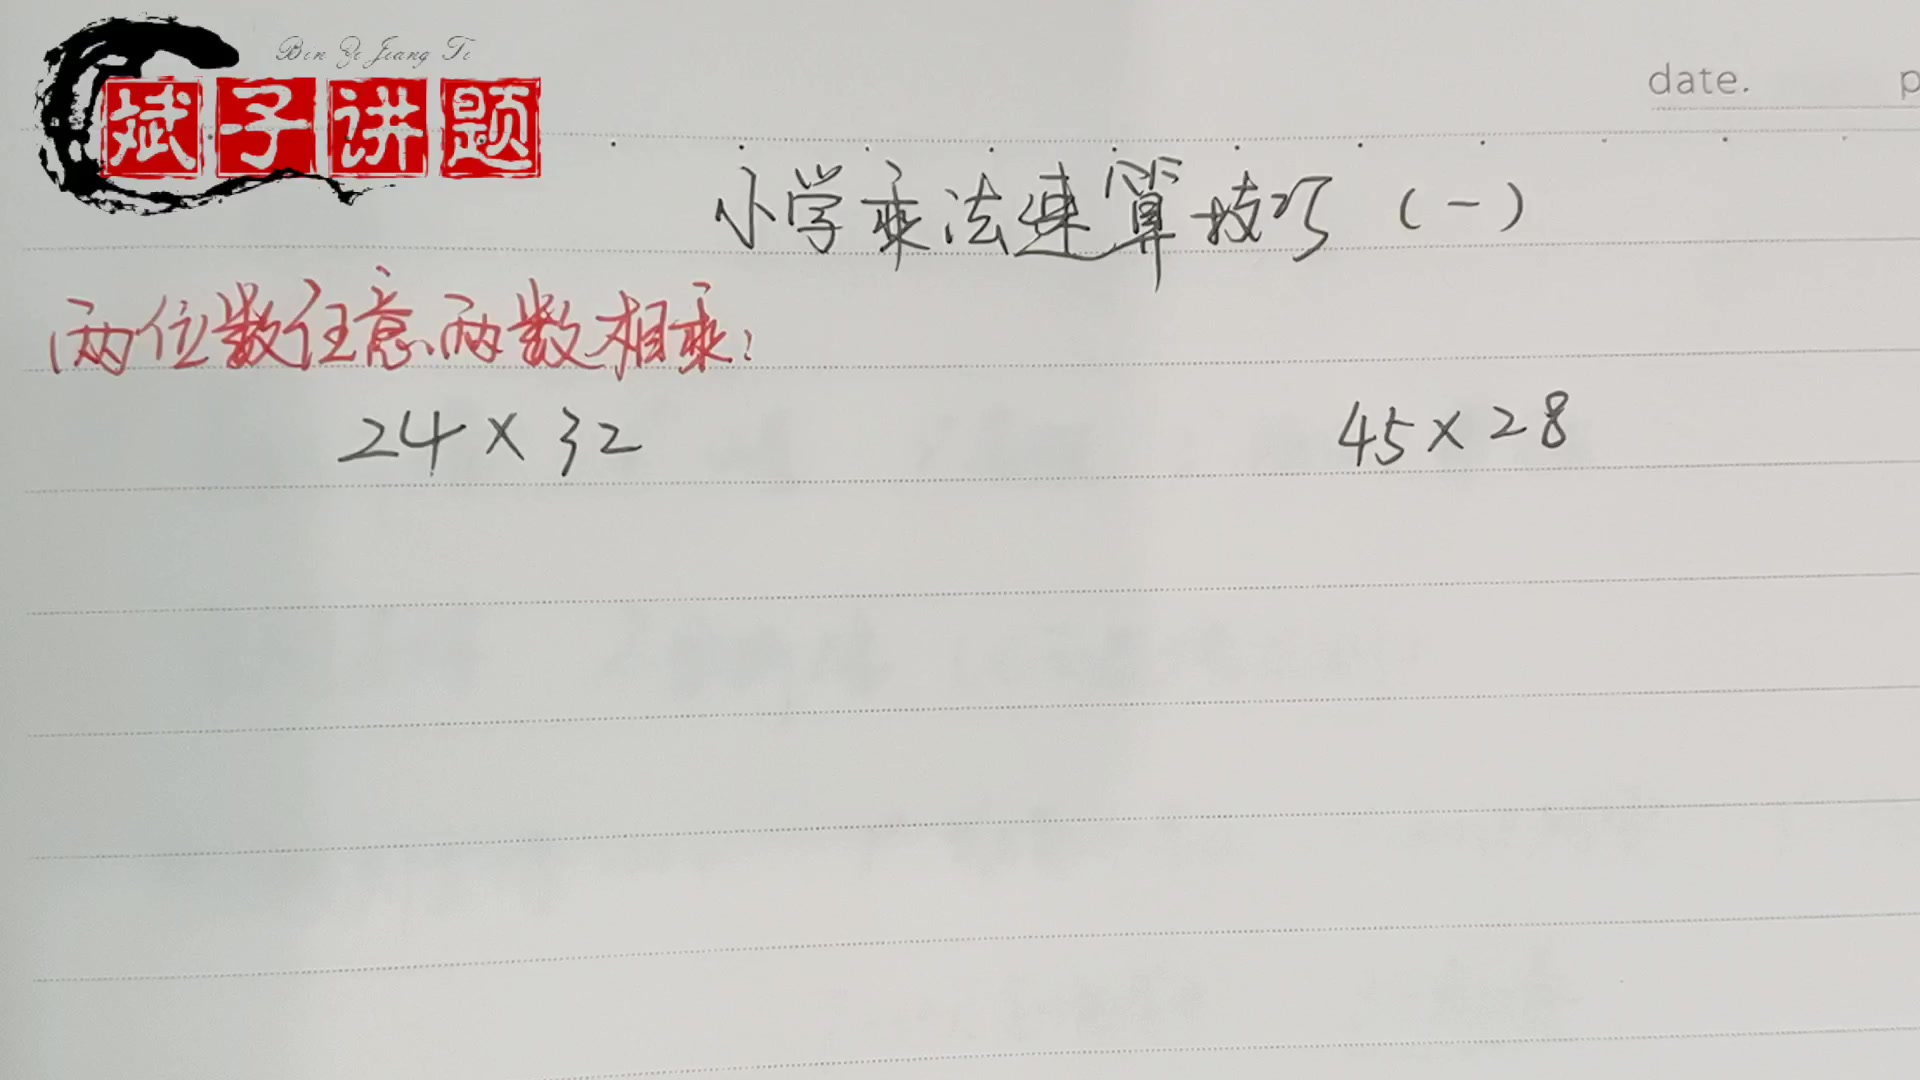 Bin Zi Jiang Ti
斌子讲题
date.
p
小学乘法速算技巧（一）
两位数任意两数相乘：
24×32
45×28